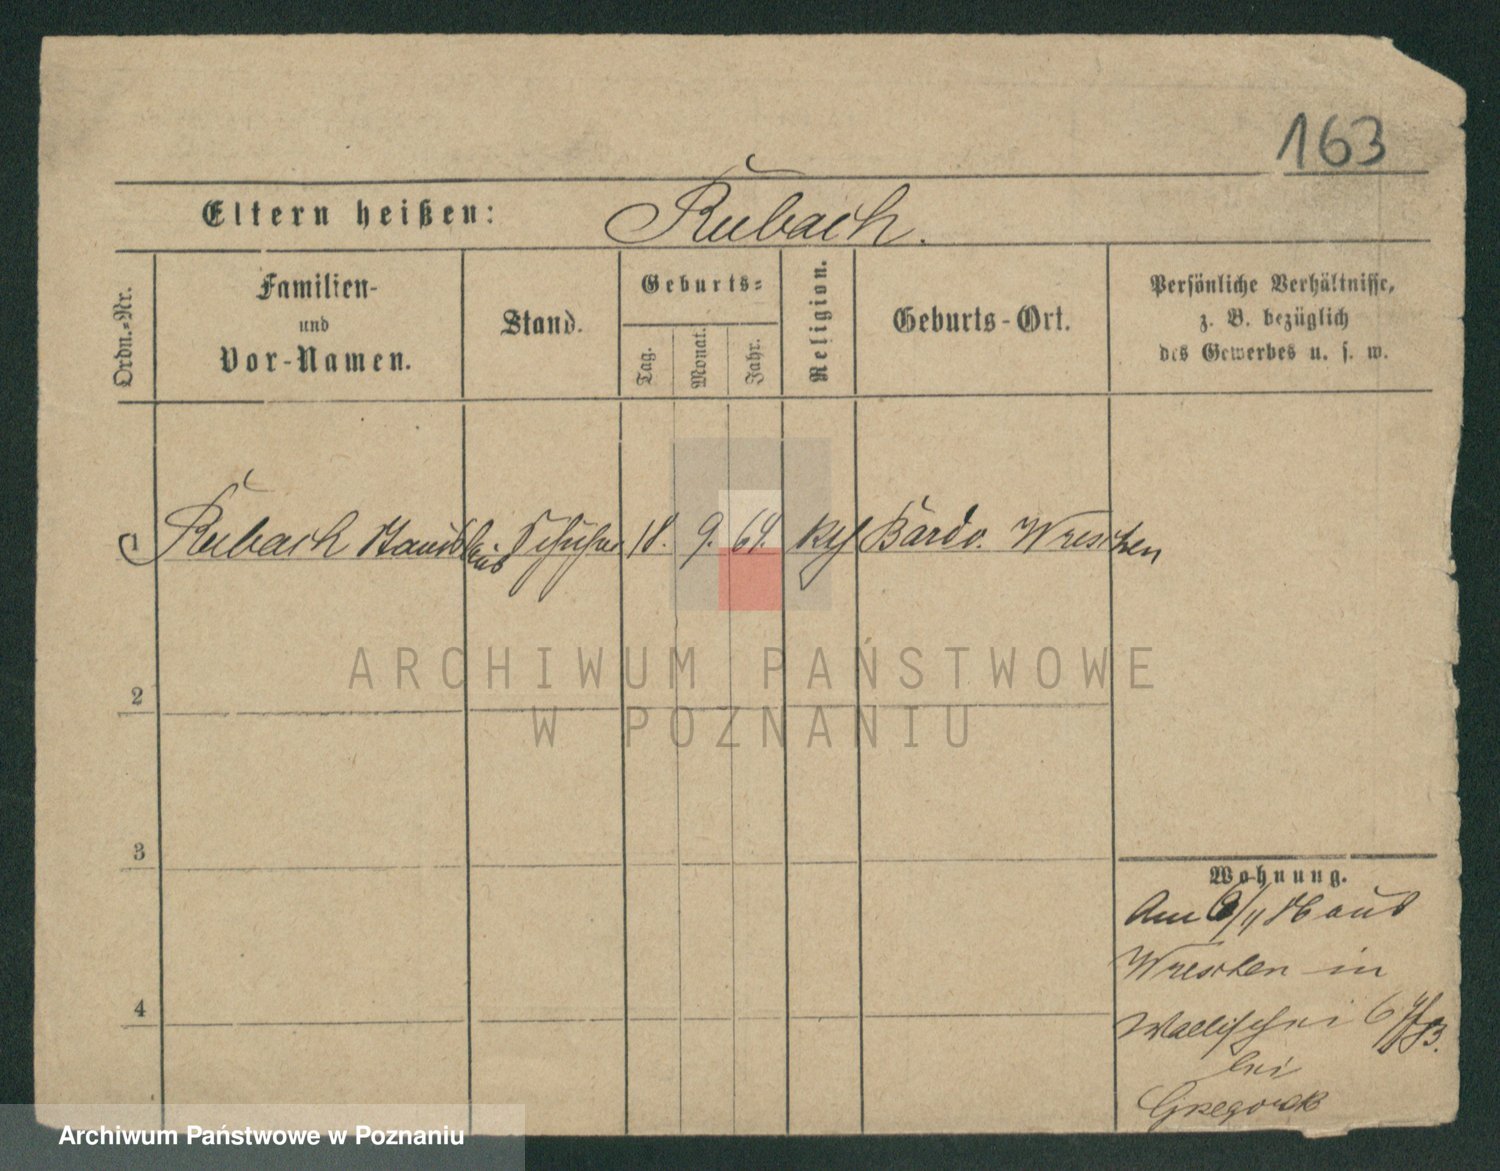 163
Eltern heißen: Rubach.
Ordn.-Nr.
Familien-
und
Vor-Namen.
Stand.
Geburts-
Tag.
Monat.
Jahr.
Religion.
Geburts-Ort.
Persönliche Verhältnisse,
z. B. bezüglich
des Gewerbes u. s. w.
1 Rubach Stanislaus 18. 9. 64. kth Bardo. Wreschen
2
3
4
Wohnung.
Am aus
Wreschen in
Wallischei 6
bei
ARCHIWUM PAŃSTWOWE
W POZNANIU
Archiwum Państwowe w Poznaniu